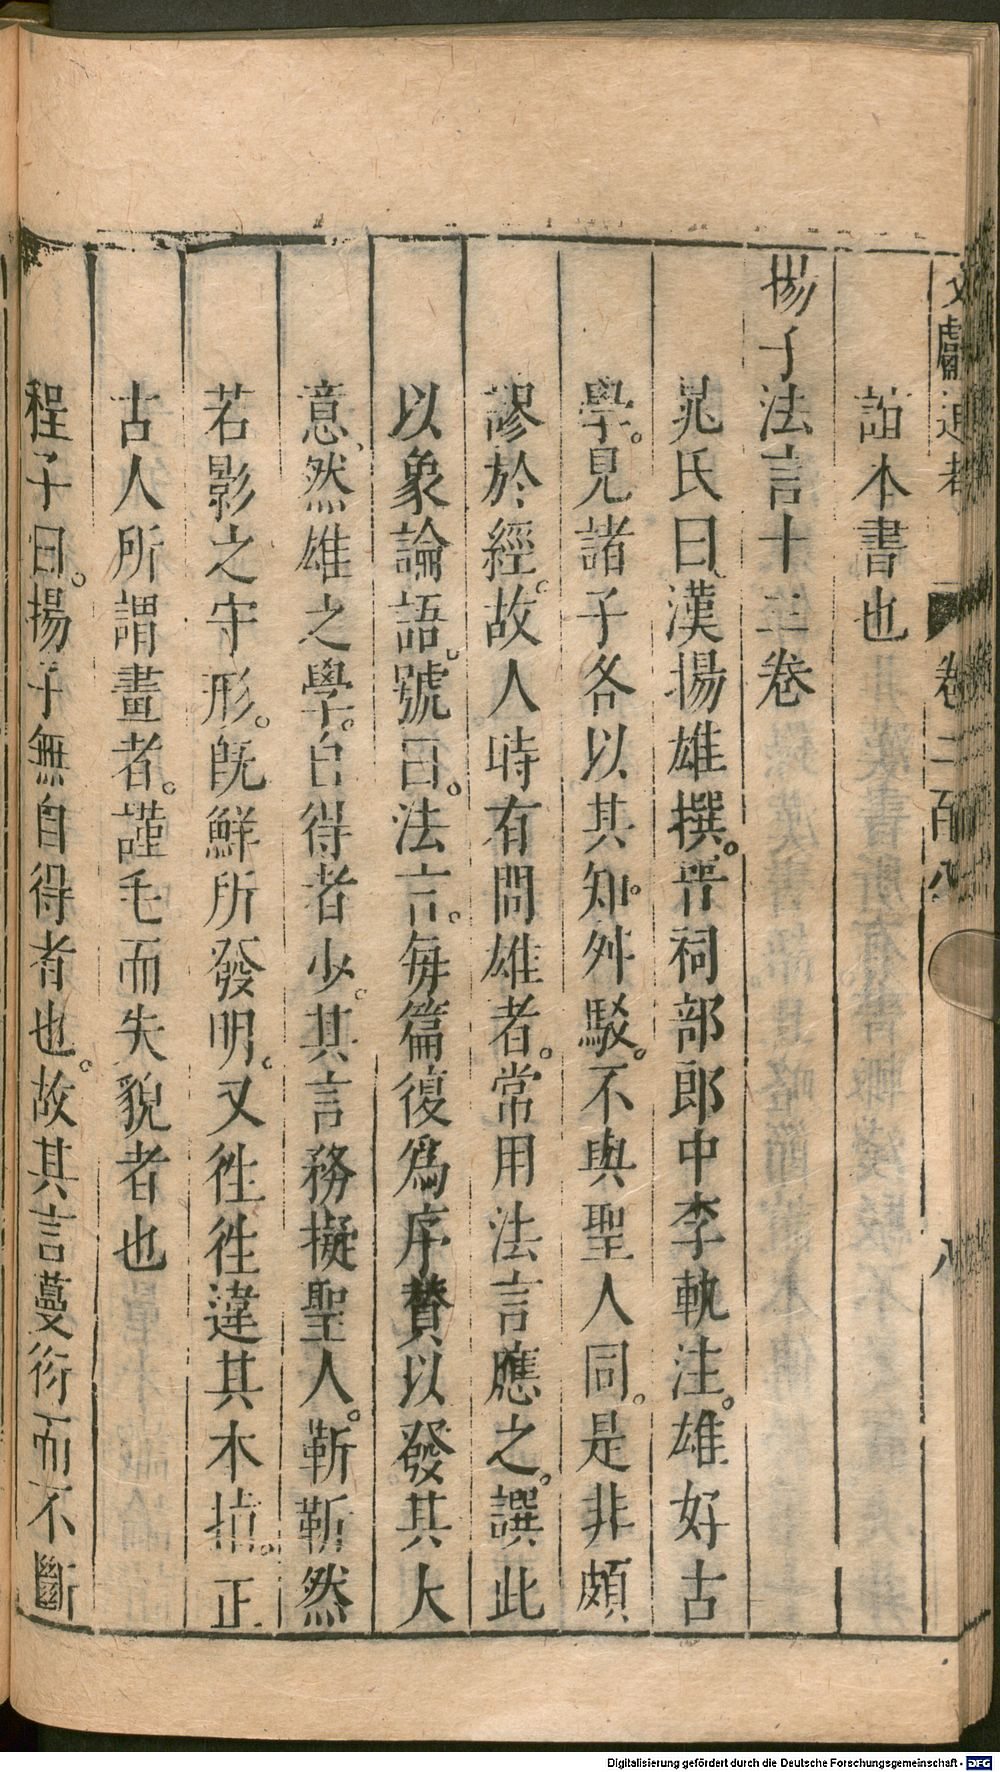 文獻通考 卷二百八 八
詁本書也
揚子法言十三卷
晁氏曰漢揚雄撰。晉祠部郎中李軌注。雄好古
學。見諸子各以其知。舛駁。不與聖人同。是非頗
謬於經。故人時有問雄者。常用法言應之。譔此
以象論語。號曰。法言。每篇復爲序贊以發其大
意、然雄之學。自得者少。其言務擬聖人。靳靳然
若影之守形。旣鮮所發明。又徃徃違其本指。正
古人所謂畫者。謹毛而失貌者也
程子曰。揚子無自得者也。故其言蔓衍而不斷
Digitalisierung gefördert durch die Deutsche Forschungsgemeinschaft - DFG